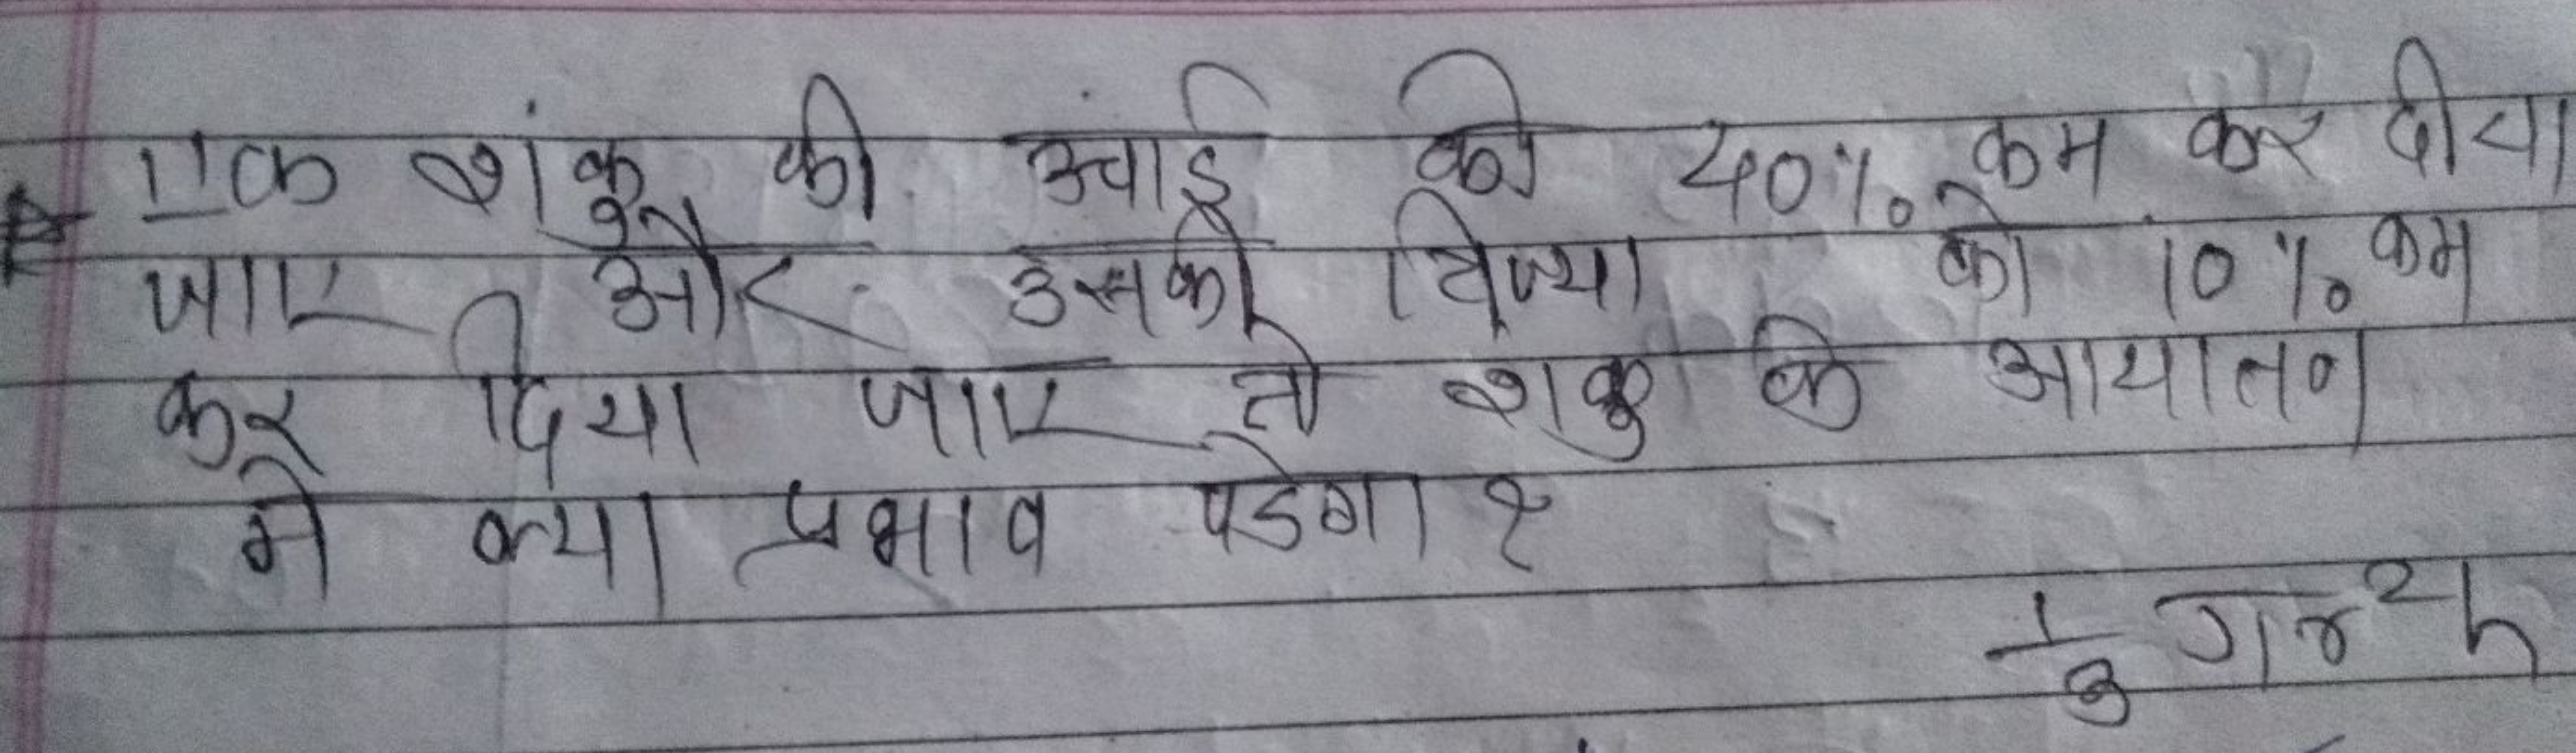 एक शंकु की उंचाई को 40% कम कर दीया
जाए और उसकी त्रिज्या को 10% कम
कर दिया जाए तो शकु के आयातन
मे क्या प्रभाव पडेगा ?
1/3 πr²h